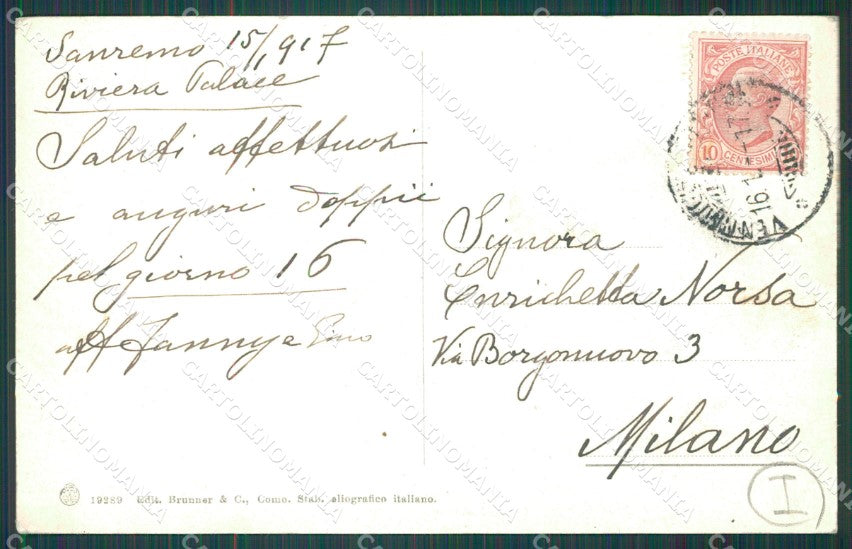 Sanremo 15/1 917
Riviera Palace
Saluti affettuosi
e auguri doppii
pel giorno 16
aff Fanny e Gino
Signora
Enrichetta Norsa
Via Borgonuovo 3
Milano
POSTE ITALIANE
10
CENTESIMI
16.1
I
19289 Edit. Brunner & C., Como. Stab. eliografico italiano.
CARTOLINOMANIA